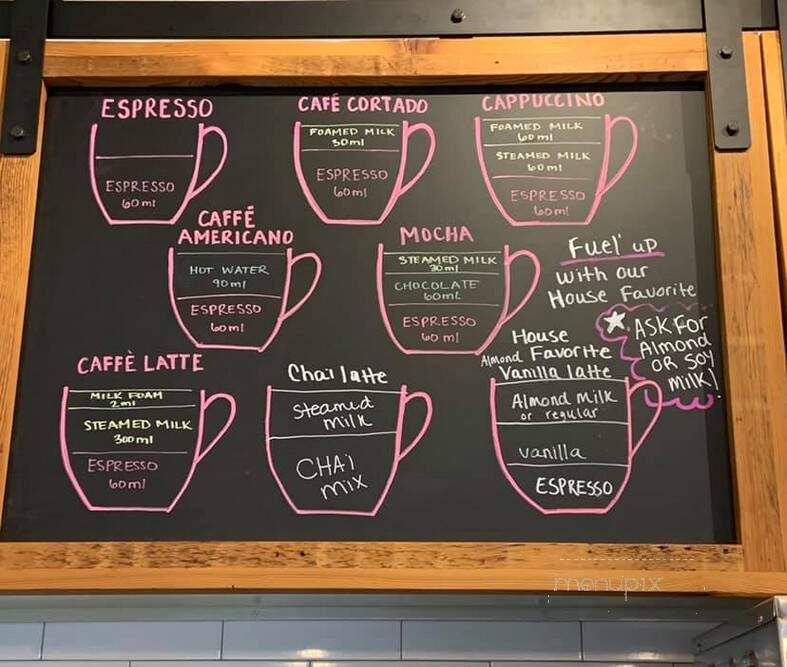 ESPRESSO
ESPRESSO
60ml
CAFÉ CORTADO
FOAMED MILK
30ml
ESPRESSO
60ml
CAPPUCCINO
FOAMED MILK
60ml
STEAMED MILK
60ml
ESPRESSO
60ml
CAFFÉ
AMERICANO
HOT WATER
90ml
ESPRESSO
60ml
MOCHA
STEAMED MILK
30ml
CHOCOLATE
60ml
ESPRESSO
60ml
Fuel' up
with our
House Favorite
ASK FOR
Almond
OR SOY
milk!
CAFFÈ LATTE
MILK FOAM
2ml
STEAMED MILK
300ml
ESPRESSO
60ml
Chai latte
Steamed
milk
CHAi
mix
House
Almond Favorite
Vanilla latte
Almond milk
or regular
vanilla
ESPRESSO
menupix